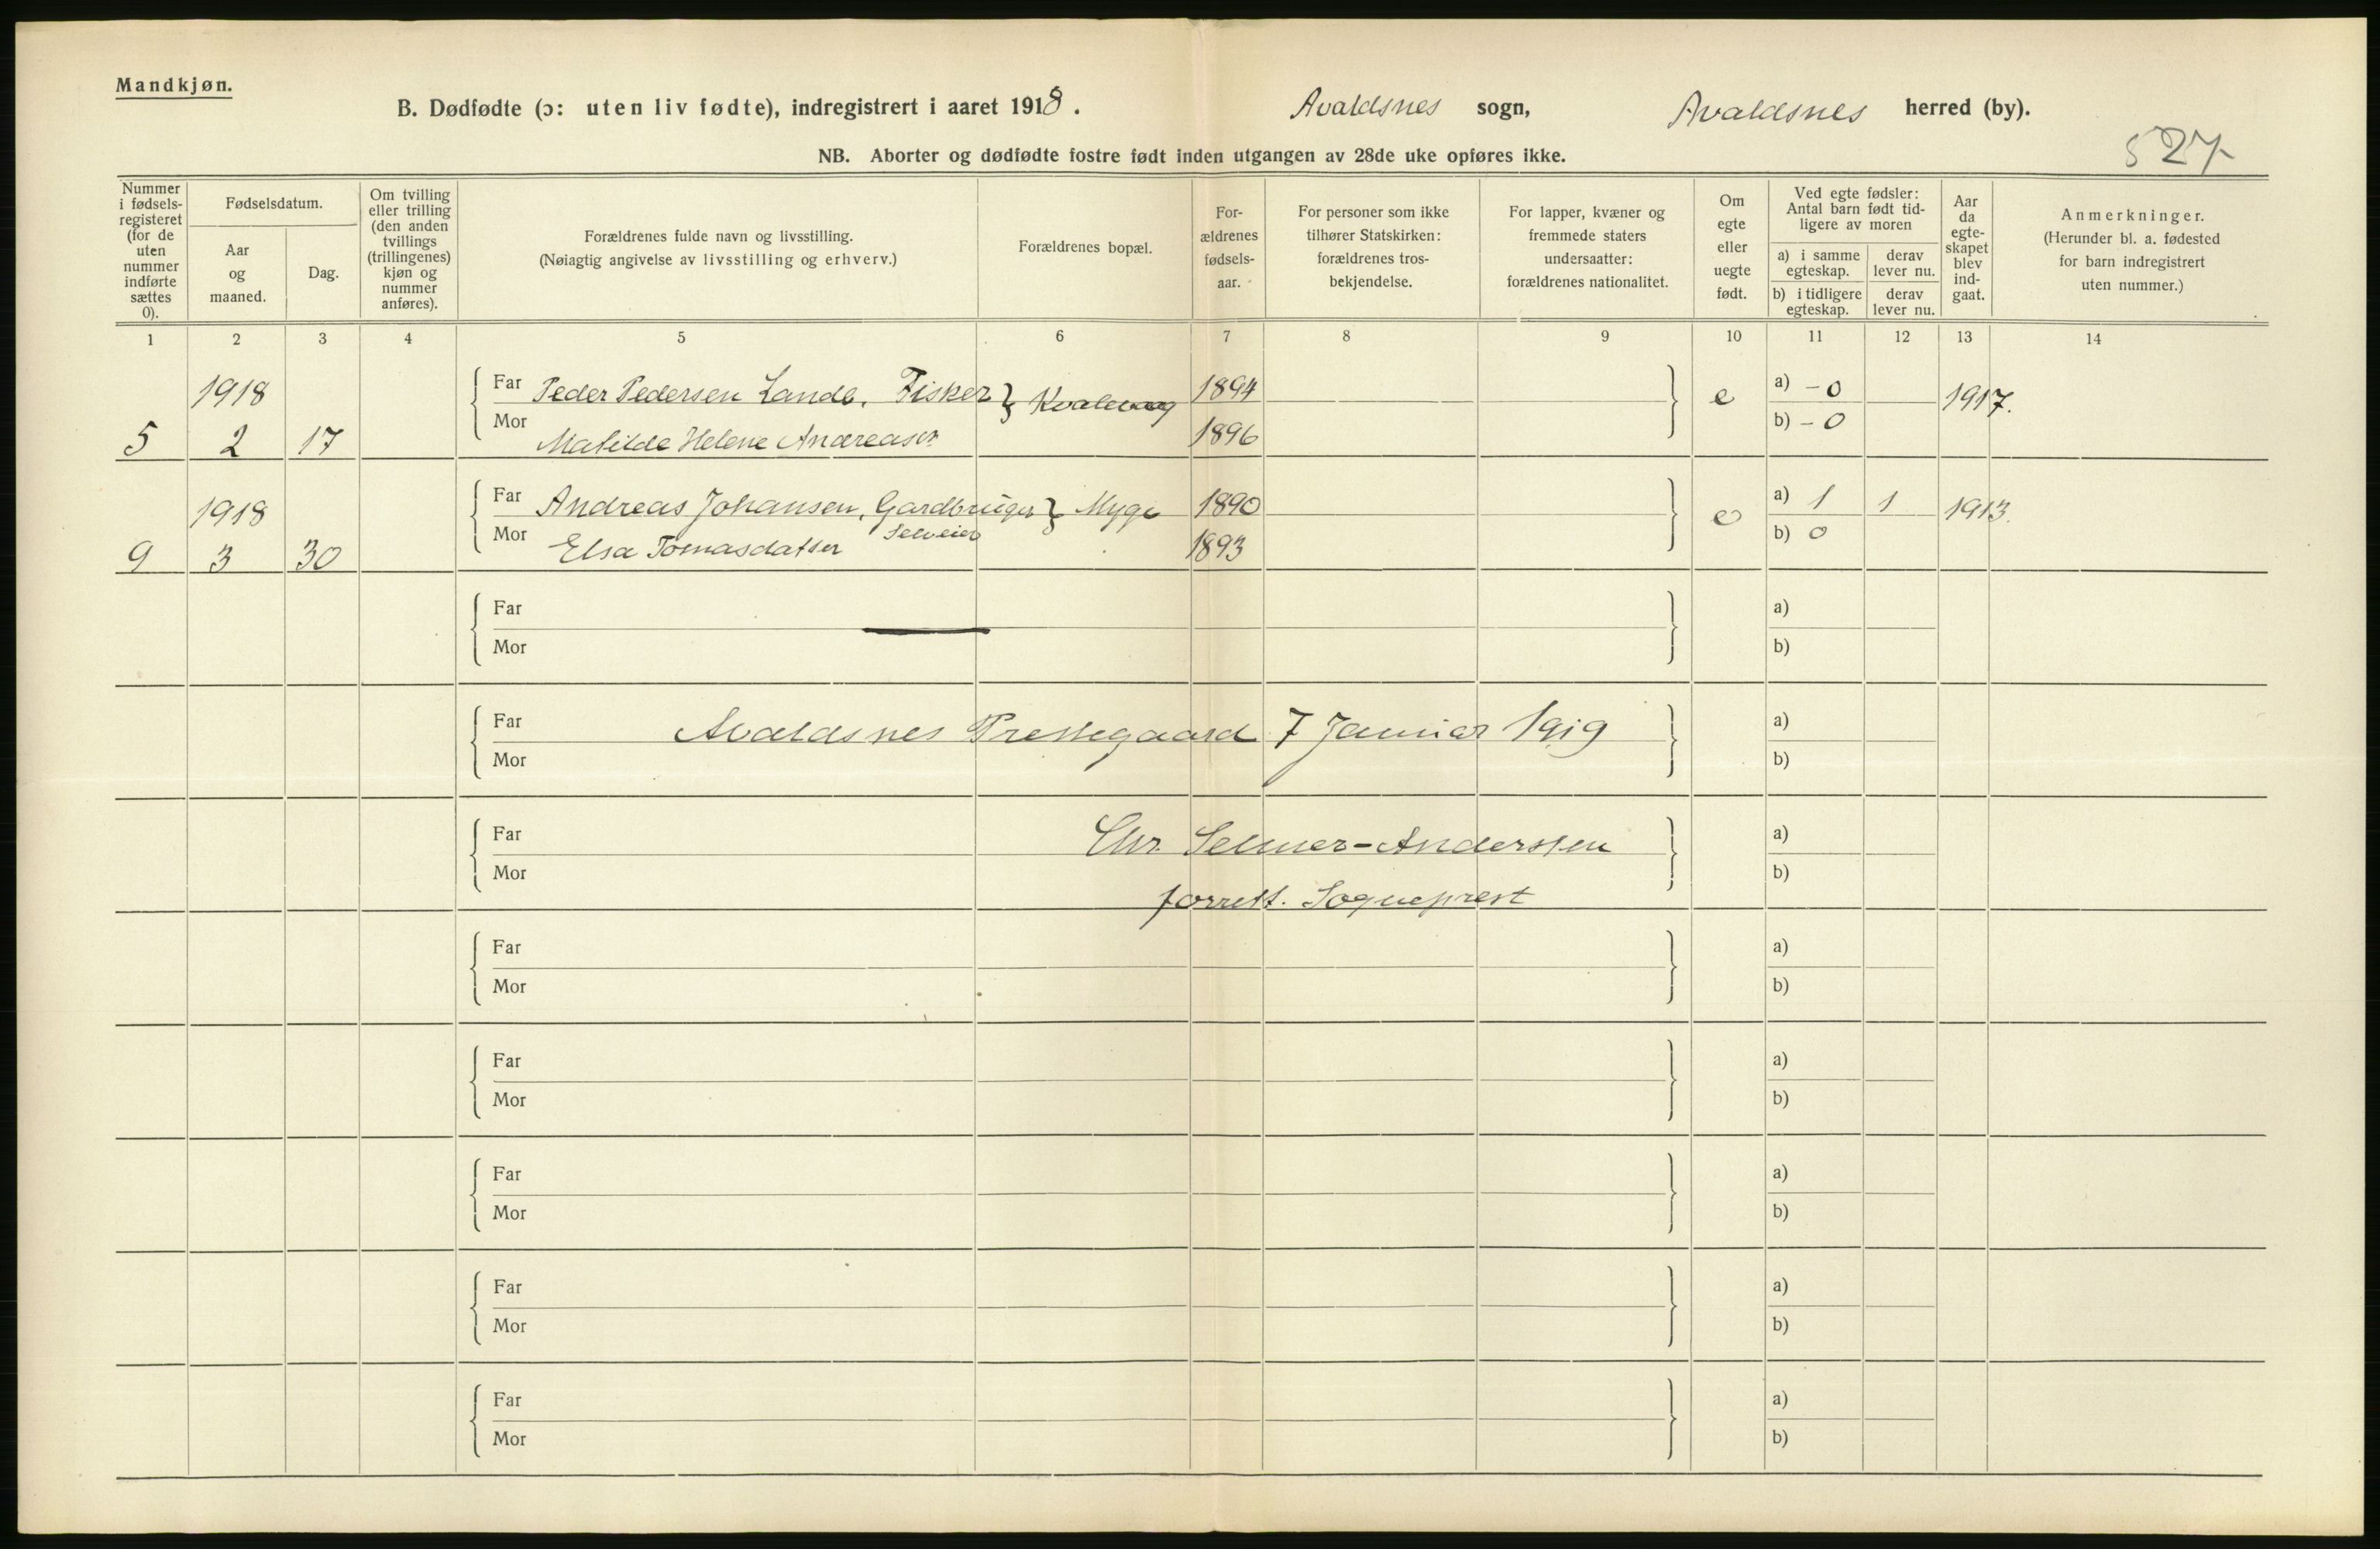 Mandkjøn.
B. Dødfødte (ɔ: uten liv fødte), indregistrert i aaret 1918. Avaldsnes sogn, Avaldsnes herred (by).
527
NB. Aborter og dødfødte fostre født inden utgangen av 28de uke opføres ikke.
Nummer i fødsels-registeret (for de uten nummer indførte sættes 0).
Fødselsdatum.
Aar og maaned.
Dag.
Om tvilling eller trilling (den anden tvillings (trillingenes) kjøn og nummer anføres).
Forældrenes fulde navn og livsstilling.
(Nøiagtig angivelse av livsstilling og erhverv.)
Forældrenes bopæl.
For-ældrenes fødsels-aar.
For personer som ikke tilhører Statskirken: forældrenes tros-bekjendelse.
For lapper, kvæner og fremmede staters undersaatter: forældrenes nationalitet.
Om egte eller uegte født.
Ved egte fødsler: Antal barn født tid-ligere av moren
a) i samme egteskap.
derav lever nu.
b) i tidligere egteskap.
derav lever nu.
Aar da egte-skapet blev ind-gaat.
Anmerkninger.
(Herunder bl. a. fødested for barn indregistrert uten nummer.)
1 2 3 4 5 6 7 8 9 10 11 12 13 14
1918 Far Peder Pedersen Lande, Fisker } Kvalevaag 1894 e a) - 0 1917.
5 2 17 Mor Matilde Helene Andreasen 1896 b) - 0
1918 Far Andreas Johansen, Gardbruger } Myge 1890 e a) 1 1 1913.
Selveier
9 3 30 Mor Elsa Tomasdatter 1893 b) 0
Far a)
Mor b)
Far Avaldsnes Prestegaard 7 Januar 1919 a)
Mor b)
Far Chr. Selmer-Anderssen a)
Mor b)
forrett. Sogneprest
Far a)
Mor b)
Far a)
Mor b)
Far a)
Mor b)
Far a)
Mor b)
Far a)
Mor b)